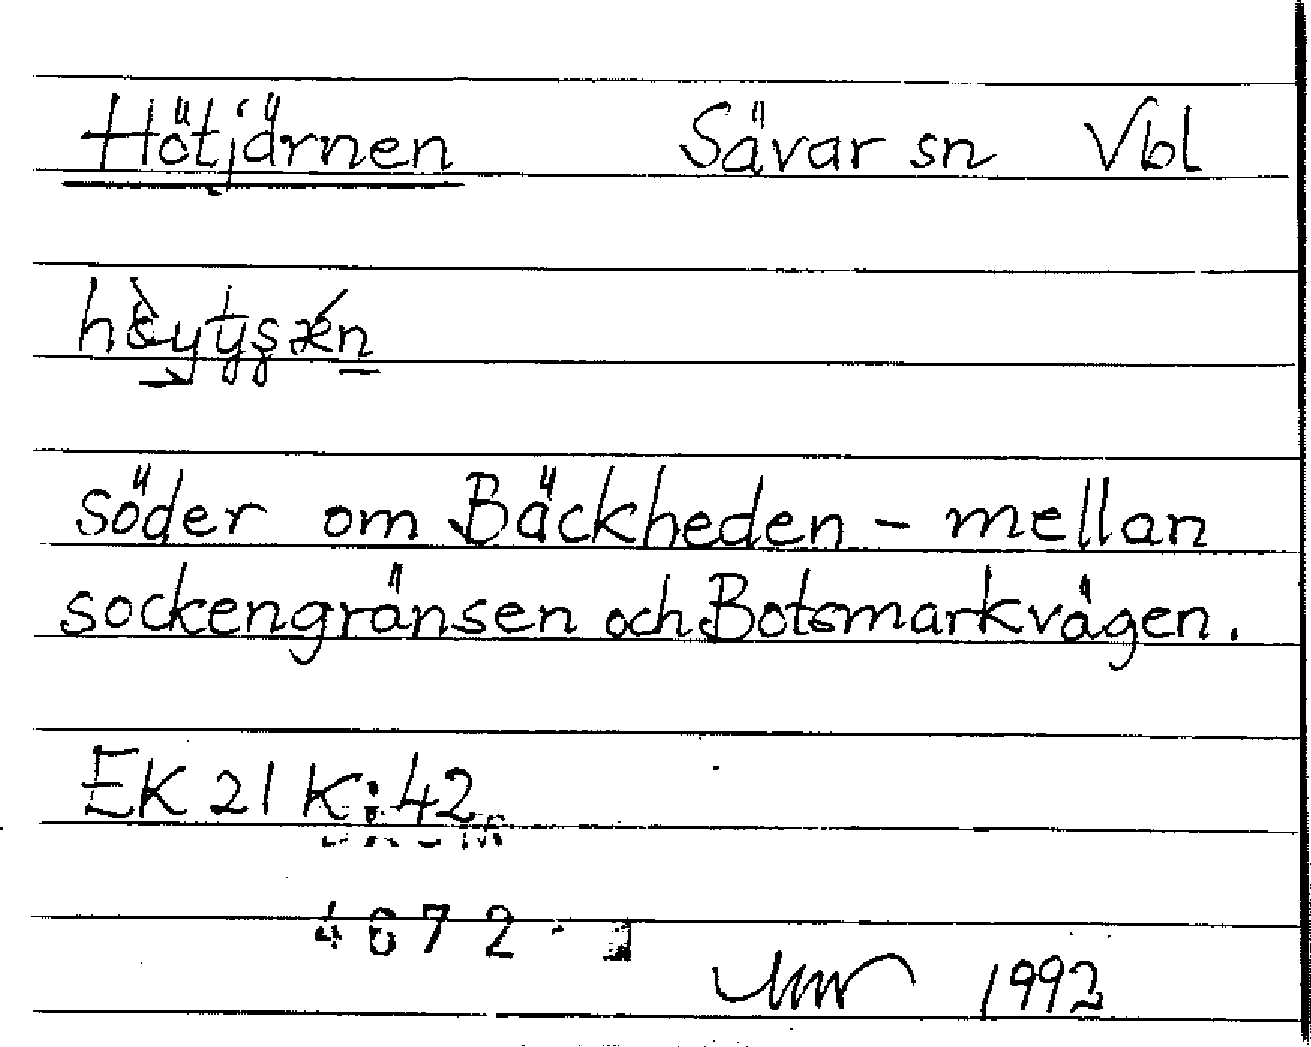 Hötjärnen Sävar sn Vbl
söder om Bäckheden – mellan
sockengränsen och Botsmarkvägen.
EK 21 K: 42
4672
1992